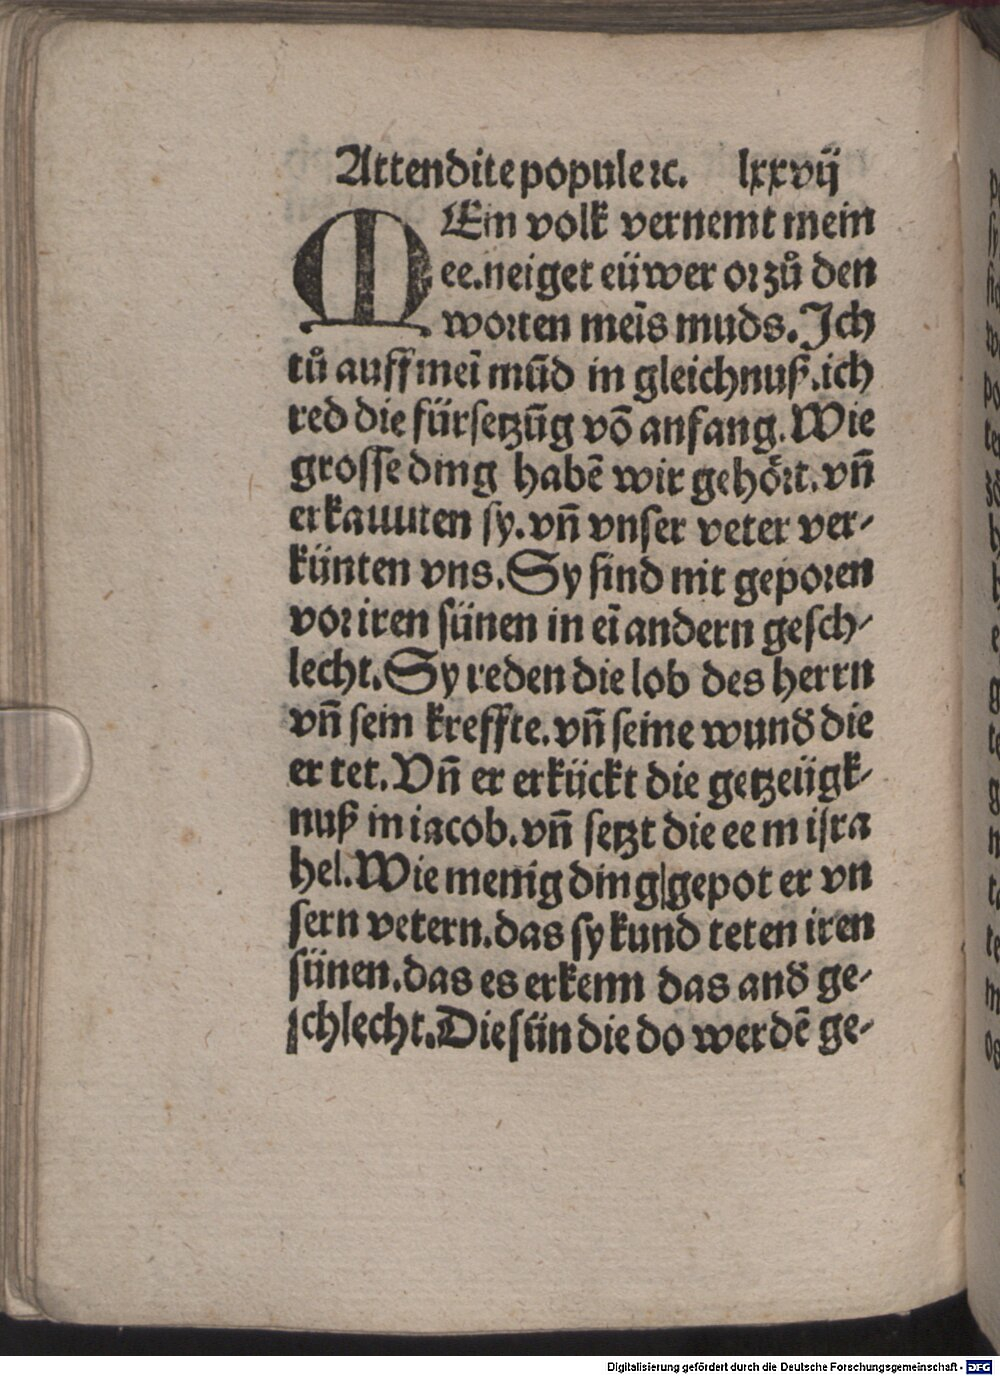 Attendite populeꝛc. lxxvij
MEin volk vernemt mein
ee.neiget eüwer oꝛ zů den
woꝛten meīs muds.Ich
tů auff meī mūd in gleichnuß.ich
red die fürsetzūg vō anfang.Wie
grosse ding habē wir gehöꝛt.vn̄
erkauuten sy.vn̄ vnser veter ver⸗
künten vns.Sy sind nit gepoꝛen
voꝛ iren sünen in eī andern gesch⸗
lecht.Sy reden die lob des herrn
vn̄ sein kreffte.vn̄ seine wund̄ die
er tet.Vn̄ er erkückt die getzeügk⸗
nuß in iacob.vn̄ setzt die ee in isra
hel.Wie menig ding gepot er vn
sern vetern.das sy kund teten iren
sünen.das es erkenn das and̄ ge⸗
schlecht.Die sün die do werdē ge⸗
Digitalisierung gefördert durch die Deutsche Forschungsgemeinschaft - DFG